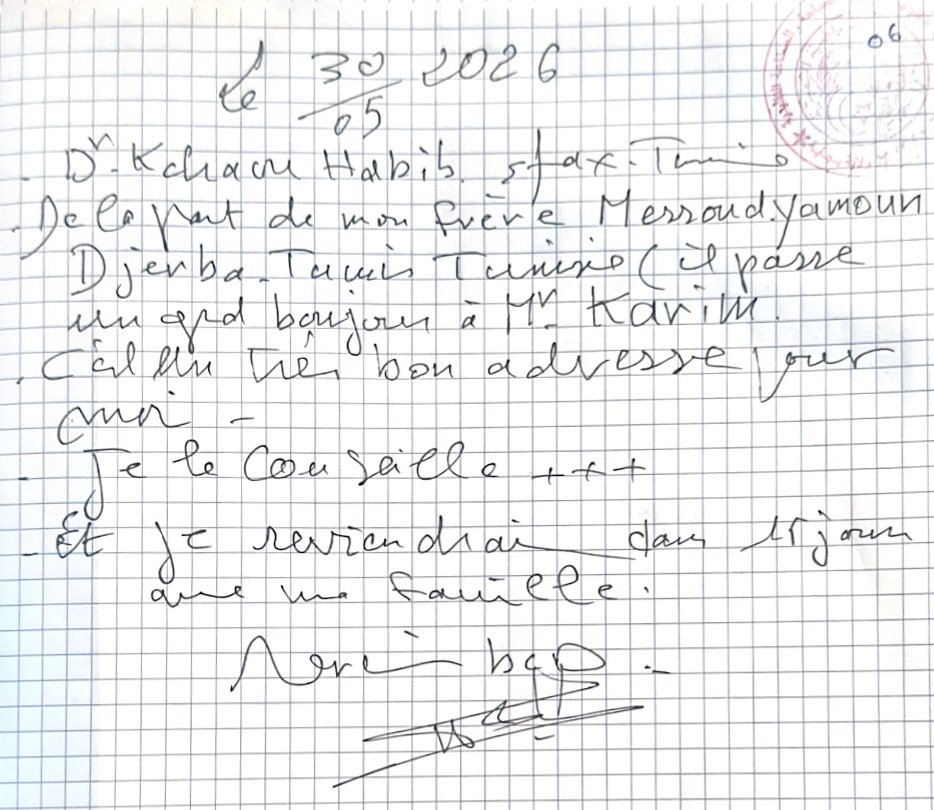 06
le 30/05 2026
- Dr. Kchaou Habib. sfax-Tunis
. De la part de mon frère Messoud.yamoun
Djerba-Tunis Tunisie (il passe
un grd bonjour à Mr. Karim.
. C'est un très bon adresse pour
moi -
- Je le conseille +++
- Et je reviendrai dans 15 jours
avec ma famille.
Merci bcp -